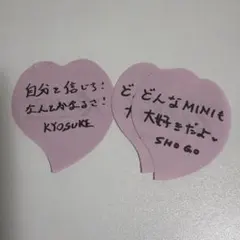 自分を信じろ!
なんとかなるさ!
KYOSUKE
ど
大
どんなMINIも
大好きだよ
SHOGO